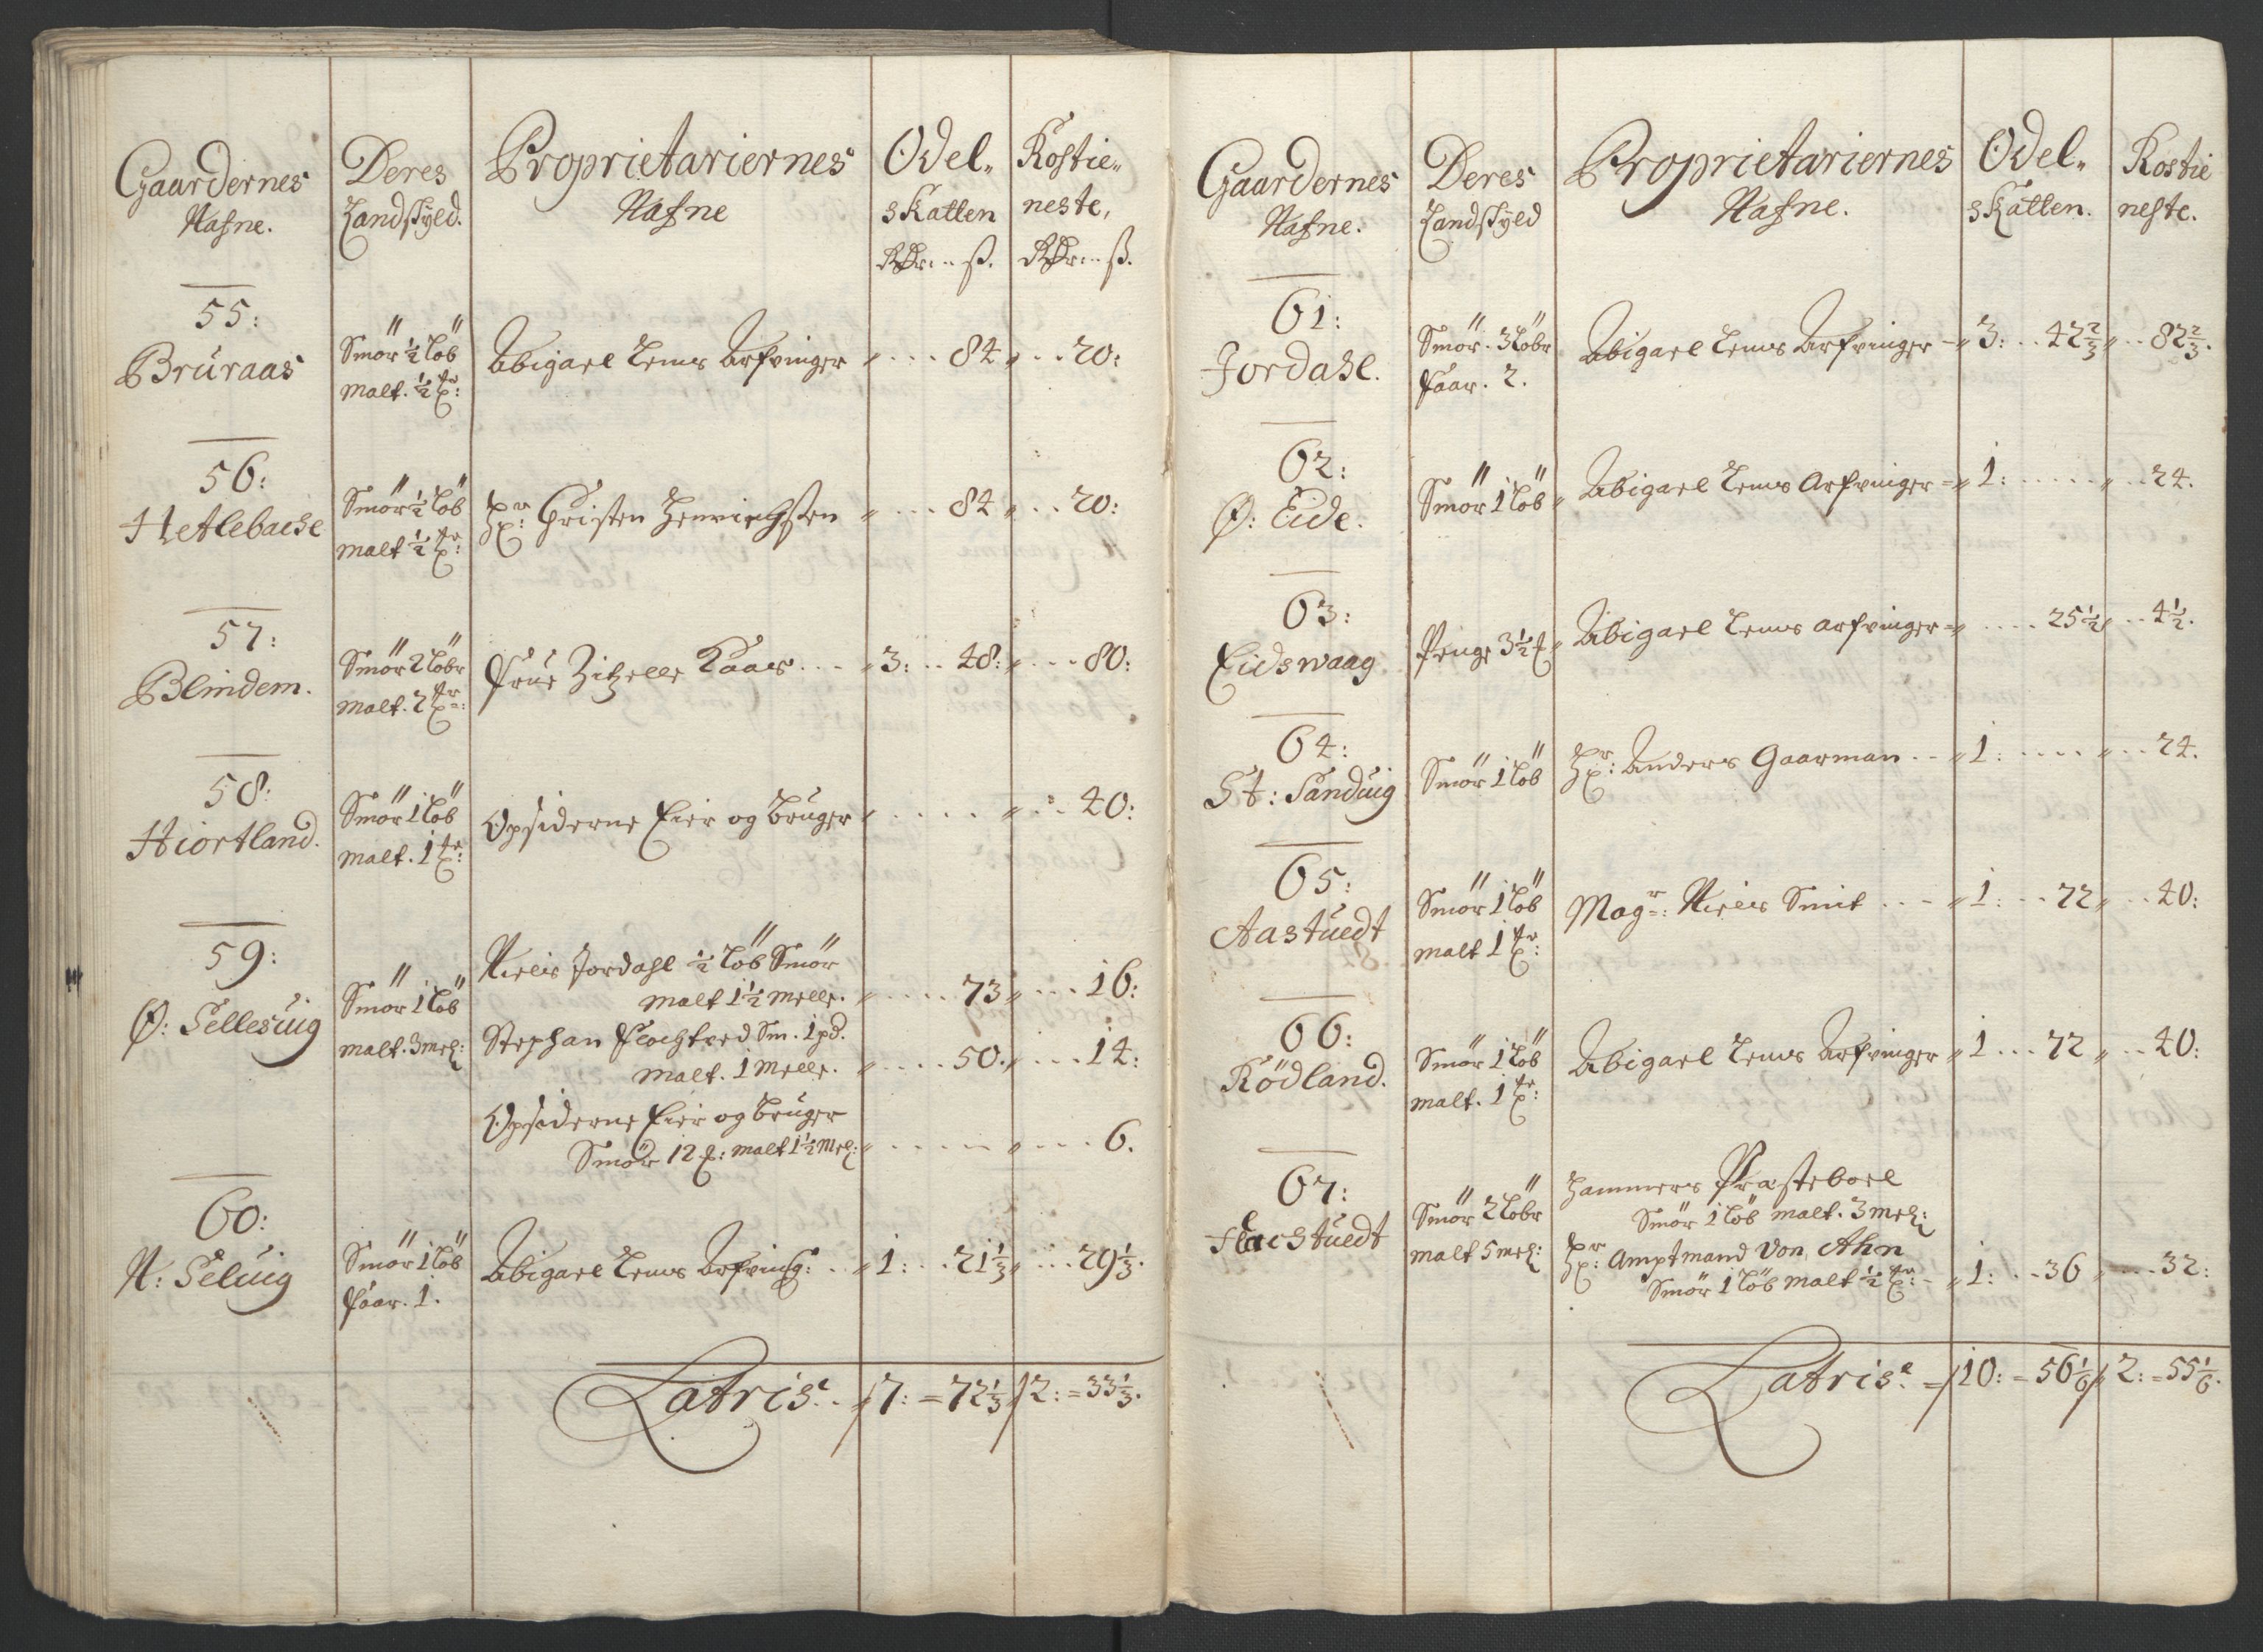 Gaardernes Nafne.
Deres Landskyld.
Proprietariernes Nafne
Odel„ skatten Rdr: .. ß.
Rostie„ neste, Rdr: .. ß.
55:
Bruraas
Smör ½ löb
malt. ½ tr:
Abigael Lems Arfvinger „ .... 84 „ .. 20:
56:
Hetlebache
Smör ½ löb
malt ½ tr:
Hr: Christen Henrichsen „ ... 84 „ .. 20:
57:
Blindem.
Smör 2 löbr
malt. 2 tr:
Frue Zitzelle Kaas .... „ 3: .. 48: „ ... 80:
58:
Hiortland.
Smör 1 löb
malt. 1 tr:
Opsiderne Eier og bruger „ ..... „ ... 40:
59:
Ø: Sellesuig
Smör 1 löb
malt. 3 mel:
Nielss Jordahl ½ löb Smör
malt 1½ melle. „ .... 73 „ ... 16:
Stephan Sm. 1 pd.
malt. 1 Melle. „ .... 50. „ ... 14:
Opsiderne Eier og bruger
Smör 12 : malt 1½ Mel: „ ..... „ .... 6.
60:
N: Seluig
Smör 1 löb
Faar. 1.
Abigael Lems Arfving: .. „ 1: .. 21⅓ „ ... 29⅓.
Latris: .. 7: = 72⅓ 2: = 33⅓.
Gaardernes Nafne.
Deres Landskyld
Proprietariernes Nafne.
Odel„ skatten.
Rostie neste.
61:
Jordahl.
Smör. 3 löbr
Faar. 2.
Abigael Lems Arfvinger - „ 3: .. 42⅔ „ .. 82⅔.
62:
Ø: Eide.
Smör 1 löb „
Abigael Lems Arfvinger = „ 1: ..... „ .. 24.
63:
Eidswaag
Penge 3½
Abigael Lems arfvinger = „ .... 25½ „ .. 4½.
64:
St: Sanduig
Smör 1 löb
Hr: Anders Gaarman .. „ 1: .... „ .. 24.
65:
Aastuedt
Smör 1 löb
malt 1 tr:
Magr: Niels Smit ... „ 1: .. 72 „ .. 40:
66:
Rödland.
Smör 1 löb
malt. 1 tr:
Abigael Lems Arfvinger „ 1 ... 72 „ .. 40:
67:
Flaestuedt
Smör 2 löbr
malt 5 mel:
Hammers Præsteboel
Smör 1 löb malt. 3 mel:
Hr: Amptmand Von Ahn
Smör 1 löb malt ½ tr: - „ 1: .. 36 „ ... 32:
Latris: = 10: = 56⅙ 2: = 55⅙.